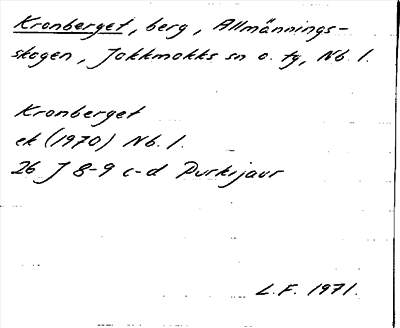 Kronberget, berg, Allmännings-
skogen, Jokkmokks sn o. tg, Nb. l.
Kronberget
ek (1970) Nb. l.
26 J 8-9 c-d Purkijaur
L.F. 1971.